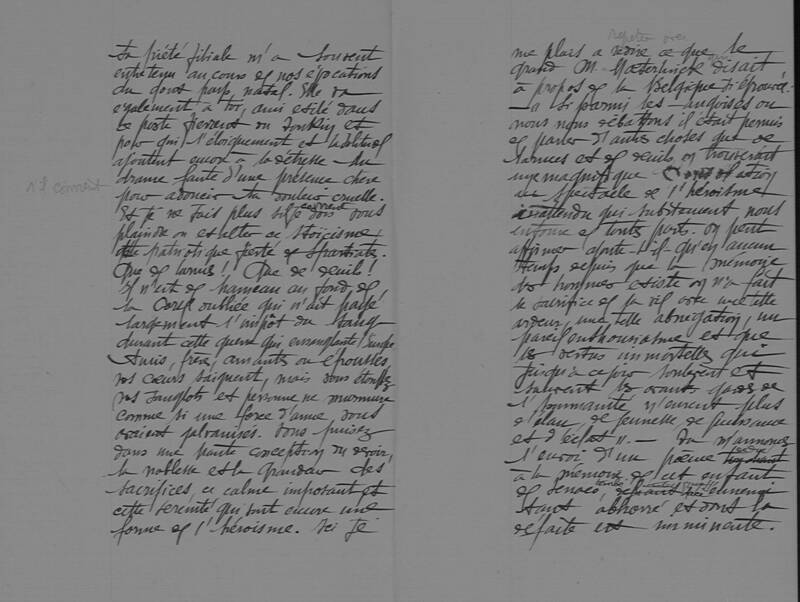 Ta piété filiale m'a souvent
entretenu au cours de nos évocations
du doux pays natal. Elle va
également à toi, ami exilé dans
le poste fiévreux du Tonkin et
pour qui l'éloignement et la solitude
ajoutent encore à la détresse du
drame faute d'une présence chère
pour adoucir ta douleur cruelle.
s'il convient
Et je ne sais plus si je dois vous
convient
plaindre ou exalter ce stoïcisme
patriotique fierté de spartiate.
Que de larmes! Que de deuils!
Il n'est de hameau au fond de
la Corse oubliée qui n'ait payé
largement l'impôt du sang
durant cette guerre qui ensanglante l'Europe
Amis, frère, amantes ou épouses,
vos cœurs saignent, mais vous étouffez
vos sanglots et personne ne murmure
comme si une force d'âme vous
avaient galvanisés. Vous puisez
dans une haute conception du devoir,
la noblesse et la grandeur des
sacrifices, ce calme imposant et
cette sérénité qui sont encore une
forme de l'héroïsme. Ici je
répéter avec
me plais à redire ce que le
grand M. Maeterlinck disait
à propos de la Belgique si éprouvée.
"à parmi les angoisses où
nous nous débattons il était permis
de parler d'autres choses que de
larmes et de deuils on trouverait
une magnifique consolation
au spectacle de l'héroïsme
inattendu qui subitement nous
environne de toutes parts. On peut
affirmer ajoute-t-il qu'en aucun
temps depuis que la mémoire
des hommes existe on n'a fait
le sacrifice de sa vie avec une telle
ardeur, une telle abnégation, un
pareil enthousiasme et que
les vertus immortelles qui
jusqu'à ce jour soulèvent et
sauvent les avants gardes de
l'humanité n'eurent plus
d'élan, de jeunesse de puissance
et d'éclat". — Tu m'annonces
l'envoi d'un poème
à la mémoire de cet enfant
de Venaco tombé devant ennemi
tant abhorré et dont la
défaite est imminente.